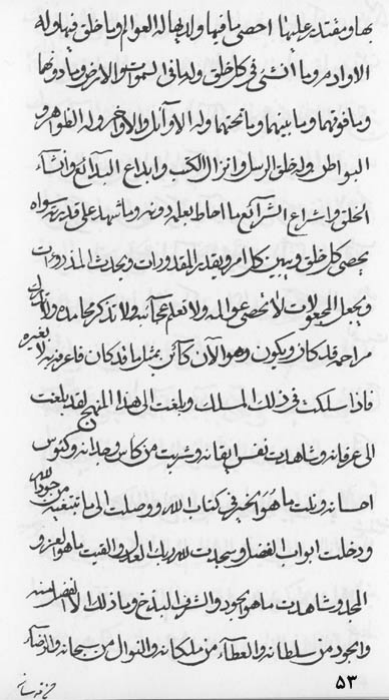 بها و مقتدر عليها احصى ما فيها ولا نهاية له العوالم و ما خلق فيها وله
الاوادم و ما انشئ في كل خلق وله ما في السموات و الارض و ما دونها
و ما فوقهما و ما بينهما و ما تحتهما وله الاوائل و الاواخر وله الظواهر و
البواطن وله خلق الرسل و انزال الكتب و ابداع البدائع و انشاء
الخلق و اشراع الشرائع ما احاط بعلمه دونه و ما شهد على قدرته سواه
يحصى كل خلق و يبين كل امر و يقدر المقدورات و يحدث المذوتات
و يجعل المجعولات لا تحصى عوالمه ولا تعلم عجائبه ولا تذكر محامده
مراحمه قد كان و يكون و هو الآن كائن بمثل ما قد كان فاعرفه لا بغيره
فاذا سلكت في ذلك المسلك و بلغت الى هذا المنهج لقد بلغت
الى عرفانه و شاهدت نفس ايقانه و شربت من كأس وجدانه و كئوس
احسانه و نلت ما هو الخير في كتاب الله و وصلت الى ما تبتغيه من جود الله
و دخلت ابواب الفضل و سجدت لله ربك العلى و لقيت ما هو العز و
المجد و شاهدت ما هو الجود و الشرف البذخ و ما ذلك الا الفضل منه
و الجود من سلطانه و العطاء من ملكانه و النوال من سبحانه و الرضاء
٥٣